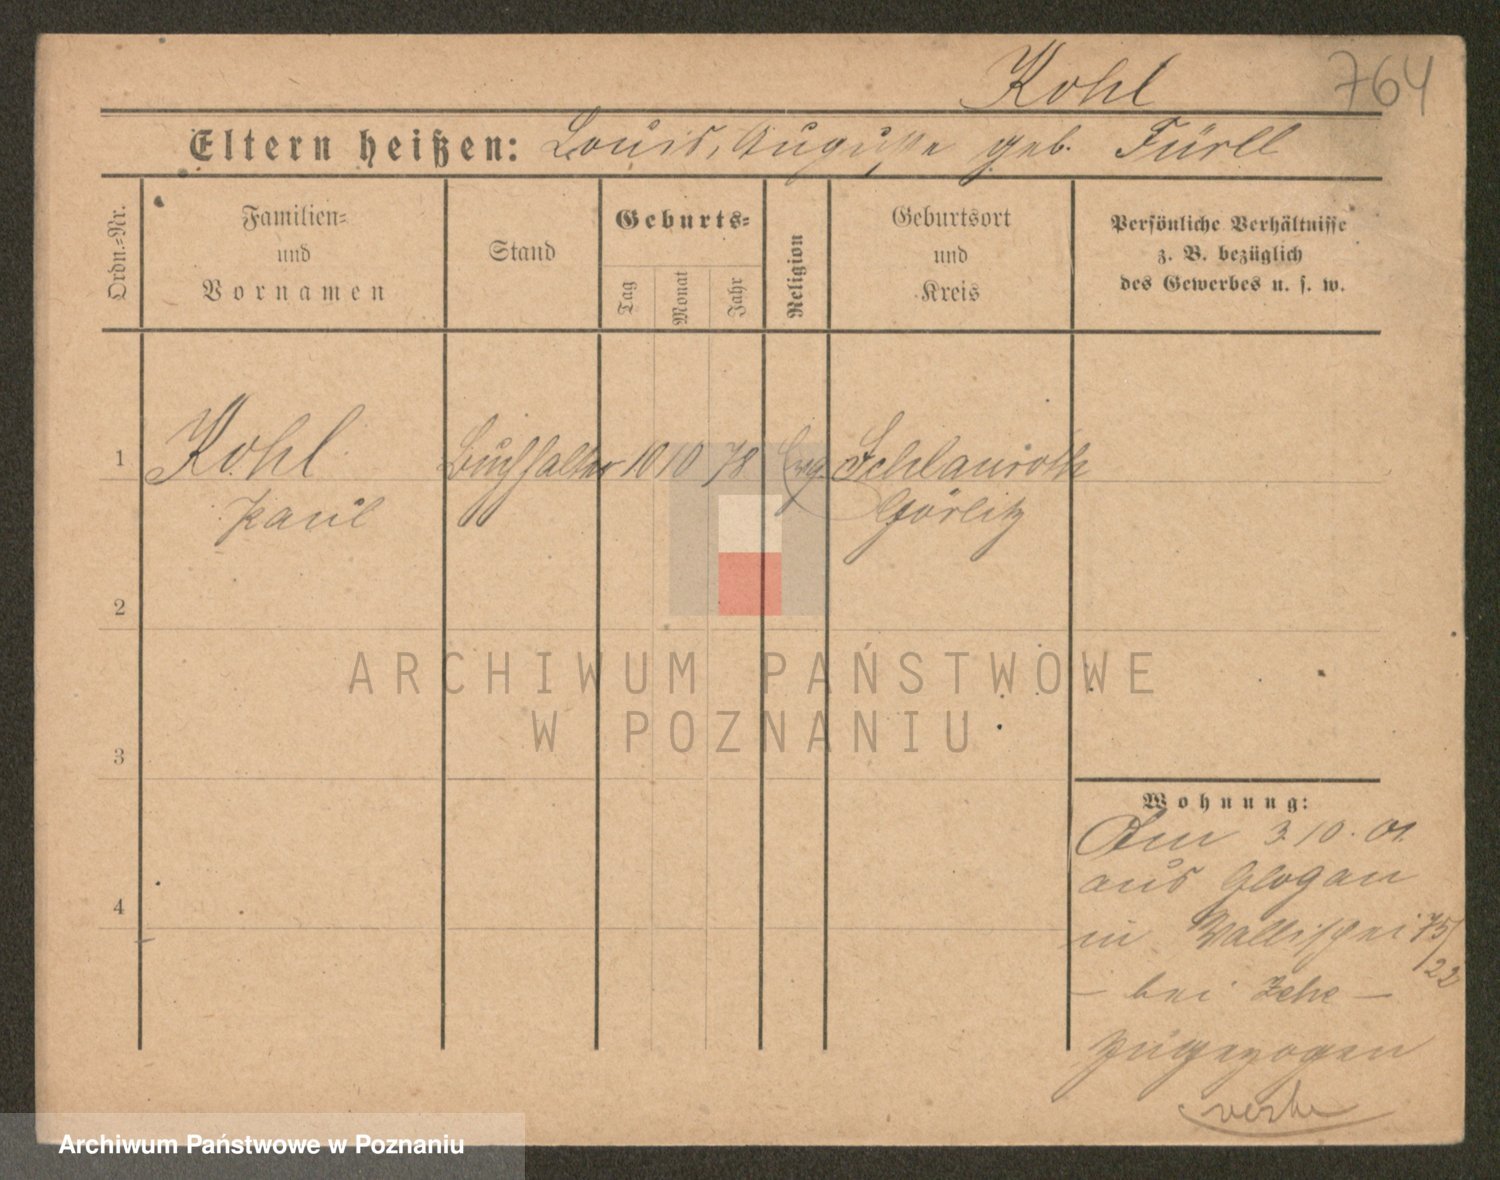 Kohl 764
Eltern heißen: Louis, Auguste geb. Fürll
Ordn.-Nr.
Familien-
und
Vornamen
Stand
Geburts-
Tag
Monat
Jahr
Religion
Geburtsort
und
Kreis
Persönliche Verhältnisse
z. B. bezüglich
des Gewerbes u. s. w.
1 Kohl Buchhalter 10 10 78 evg. Schlauroth
Paul Görlitz
2
3
4
Wohnung:
Am 3. 10. 01.
aus Glogau
in Wallischei 75/22
– bei Zehe –
zugezogen
ARCHIWUM PAŃSTWOWE
W POZNANIU
Archiwum Państwowe w Poznaniu